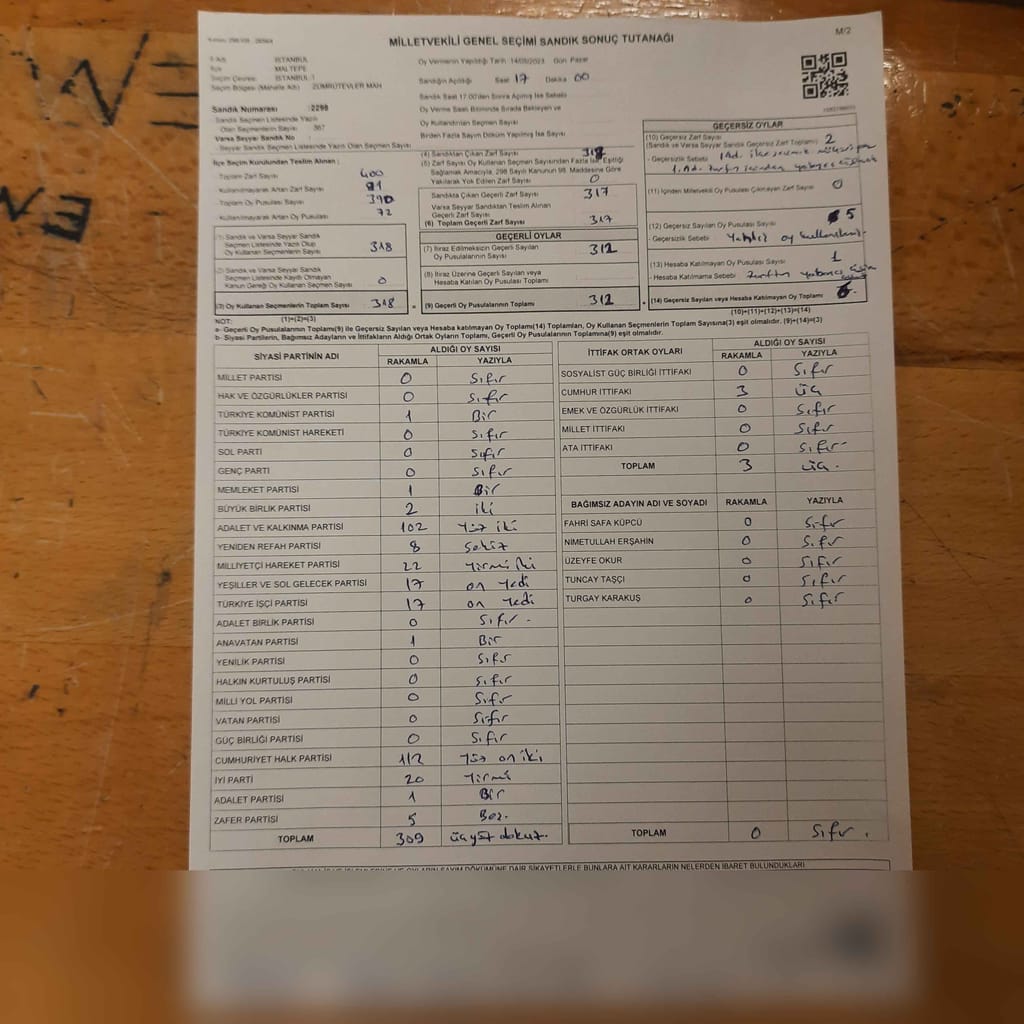 M/2
MİLLETVEKİLİ GENEL SEÇİMİ SANDIK SONUÇ TUTANAĞI
İl Adı İSTANBUL
İlçe MALTEPE
Seçim Çevresi İSTANBUL 1
Seçim Bölgesi (Mahalle Adı) ZÜMRÜTEVLER MAH
Oy Vermenin Yapıldığı Tarih 14/05/2023 Gün Pazar
Sandığın Açıldığı Saat 17 Dakika 00
Sandık Saat 17.00'den Sonra Açılmış İse Sebebi
Oy Verme Saati Bitiminde Sırada Bekleyen ve
Oy Kullandırılan Seçmen Sayısı
Birden Fazla Sayım Döküm Yapılmış İse Sayısı
Sandık Numarası :2298
Sandık Seçmen Listesinde Yazılı
Olan Seçmenlerin Sayısı 367
Varsa Seyyar Sandık No :
Seyyar Sandık Seçmen Listesinde Yazılı Olan Seçmen Sayısı
İlçe Seçim Kurulundan Teslim Alınan :
- Toplam Zarf Sayısı 400
- Kullanılmayarak Artan Zarf Sayısı
- Toplam Oy Pusulası Sayısı 390
- Kullanılmayarak Artan Oy Pusulası 72
(1) Sandık ve Varsa Seyyar Sandık
Seçmen Listesinde Yazılı Olup
Oy Kullanan Seçmenlerin Sayısı 318
(2) Sandık ve Varsa Seyyar Sandık
Seçmen Listesinde Kayıtlı Olmayan
Kanun Gereği Oy Kullanan Seçmen Sayısı 0
(3) Oy Kullanan Seçmenlerin Toplam Sayısı 318
(1)+(2)=(3)
(4) Sandıktan Çıkan Zarf Sayısı
(5) Zarf Sayısı Oy Kullanan Seçmen Sayısından Fazla İse, Eşitliği
Sağlamak Amacıyla, 298 Sayılı Kanunun 98. Maddesine Göre
Yakılarak Yok Edilen Zarf Sayısı 0
Sandıkta Çıkan Geçerli Zarf Sayısı 317
Varsa Seyyar Sandıktan Teslim Alınan
Geçerli Zarf Sayısı
(6) Toplam Geçerli Zarf Sayısı 317
GEÇERLİ OYLAR
(7) İtiraz Edilmeksizin Geçerli Sayılan
Oy Pusulalarının Sayısı 312
(8) İtiraz Üzerine Geçerli Sayılan veya
Hesaba Katılan Oy Pusulası Toplamı
= (9) Geçerli Oy Pusulalarının Toplamı 312
GEÇERSİZ OYLAR
(10) Geçersiz Zarf Sayısı 2
(Sandık ve Varsa Seyyar Sandık Geçersiz Zarf Toplamı)
- Geçersizlik Sebebi
(11) İçinden Milletvekili Oy Pusulası Çıkmayan Zarf Sayısı 0
(12) Geçersiz Sayılan Oy Pusulası Sayısı 5
- Geçersizlik Sebebi Yanlış oy kullanılması
(13) Hesaba Katılmayan Oy Pusulası Sayısı 1
- Hesaba Katılmama Sebebi zarftan yabancı
+ (14) Geçersiz Sayılan veya Hesaba Katılmayan Oy Toplamı 6
(10)+(11)+(12)+(13)=(14)
NOT:
a- Geçerli Oy Pusulalarının Toplamı(9) ile Geçersiz Sayılan veya Hesaba katılmayan Oy Toplamı(14) Toplamları, Oy Kullanan Seçmenlerin Toplam Sayısına(3) eşit olmalıdır. (9)+(14)=(3)
b- Siyasi Partilerin, Bağımsız Adayların ve İttifakların Aldığı Ortak Oyların Toplamı, Geçerli Oy Pusulalarının Toplamına(9) eşit olmalıdır.
SİYASİ PARTİNİN ADI ALDIĞI OY SAYISI
RAKAMLA YAZIYLA
MİLLET PARTİSİ 0 Sıfır
HAK VE ÖZGÜRLÜKLER PARTİSİ 0 Sıfır
TÜRKİYE KOMÜNİST PARTİSİ 1 Bir
TÜRKİYE KOMÜNİST HAREKETİ 0 Sıfır
SOL PARTİ 0 Sıfır
GENÇ PARTİ 0 Sıfır
MEMLEKET PARTİSİ 1 Bir
BÜYÜK BİRLİK PARTİSİ 2 iki
ADALET VE KALKINMA PARTİSİ 102 Yüz iki
YENİDEN REFAH PARTİSİ 8 Sekiz
MİLLİYETÇİ HAREKET PARTİSİ 22 Yirmi iki
YEŞİLLER VE SOL GELECEK PARTİSİ 17 on Yedi
TÜRKİYE İŞÇİ PARTİSİ 17 on Yedi
ADALET BİRLİK PARTİSİ 0 Sıfır.
ANAVATAN PARTİSİ 1 Bir
YENİLİK PARTİSİ 0 Sıfır
HALKIN KURTULUŞ PARTİSİ 0 Sıfır
MİLLİ YOL PARTİSİ 0 Sıfır
VATAN PARTİSİ 0 Sıfır
GÜÇ BİRLİĞİ PARTİSİ 0 Sıfır
CUMHURİYET HALK PARTİSİ 112 Yüz on iki
İYİ PARTİ 20 Yirmi
ADALET PARTİSİ 1 Bir
ZAFER PARTİSİ 5 Beş.
TOPLAM 309 üçyüz dokuz.
İTTİFAK ORTAK OYLARI ALDIĞI OY SAYISI
RAKAMLA YAZIYLA
SOSYALİST GÜÇ BİRLİĞİ İTTİFAKI 0 Sıfır
CUMHUR İTTİFAKI 3 üç
EMEK VE ÖZGÜRLÜK İTTİFAKI 0 Sıfır
MİLLET İTTİFAKI 0 Sıfır
ATA İTTİFAKI 0 Sıfır
TOPLAM 3 üç.
BAĞIMSIZ ADAYIN ADI VE SOYADI RAKAMLA YAZIYLA
FAHRİ SAFA KÜPCÜ 0 Sıfır
NİMETULLAH ERŞAHİN 0 Sıfır
ÜZEYFE OKUR 0 Sıfır
TUNCAY TAŞÇI 0 Sıfır
TURGAY KARAKUŞ 0 Sıfır
TOPLAM 0 Sıfır.
DÖKÜMÜNE DAİR ŞİKAYETLERLE BUNLARA AİT KARARLARIN NELERDEN İBARET BULUNDUKLARI